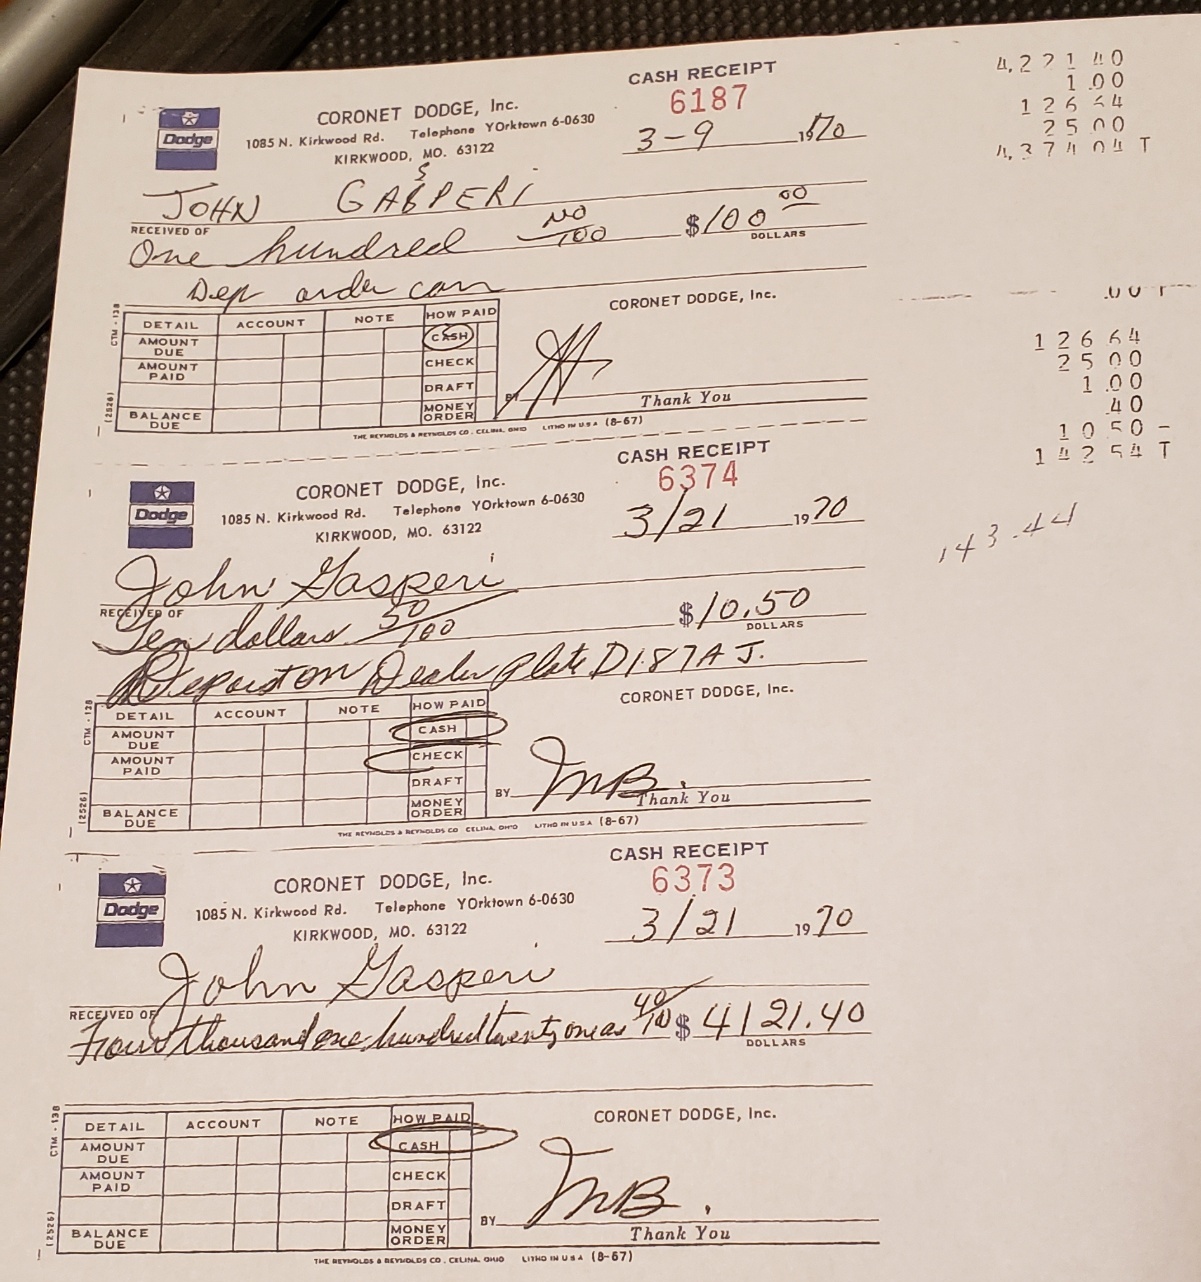 CASH RECEIPT
6187
CORONET DODGE, Inc.
Dodge
1085 N. Kirkwood Rd. Telephone YOrktown 6-0630
KIRKWOOD, MO. 63122
3-9 1970
JOHN GASPERI
RECEIVED OF
One hundred NO/100 $100 00
DOLLARS
Dep order car
CORONET DODGE, Inc.
CTM - 138
DETAIL ACCOUNT NOTE HOW PAID
AMOUNT DUE CASH
AMOUNT PAID CHECK
DRAFT
BALANCE DUE MONEY ORDER
(2526)
BY
Thank You
THE REYNOLDS & REYNOLDS CO., CELINA, OHIO LITHO IN U S A (8-67)
4,221 40
1.00
126 64
25 00
4,374 04 T
.00 T
126 64
25 00
1.00
40
10 50 -
142 54 T
143.44
CASH RECEIPT
6374
CORONET DODGE, Inc.
Dodge
1085 N. Kirkwood Rd. Telephone YOrktown 6-0630
KIRKWOOD, MO. 63122
3/21 1970
John Gasperi
RECEIVED OF
Ten dollars 50/100 $10.50
DOLLARS
Deposit on Dealer plate D187A J.
CORONET DODGE, Inc.
CTM - 138
DETAIL ACCOUNT NOTE HOW PAID
AMOUNT DUE CASH
AMOUNT PAID CHECK
DRAFT
BALANCE DUE MONEY ORDER
(2526)
BY MB.
Thank You
THE REYNOLDS & REYNOLDS CO., CELINA, OHIO LITHO IN U S A (8-67)
CASH RECEIPT
6373
CORONET DODGE, Inc.
Dodge
1085 N. Kirkwood Rd. Telephone YOrktown 6-0630
KIRKWOOD, MO. 63122
3/21 1970
John Gasperi
RECEIVED OF
Four thousand one hundred twenty one 40/10 $4121.40
DOLLARS
CORONET DODGE, Inc.
CTM - 138
DETAIL ACCOUNT NOTE HOW PAID
AMOUNT DUE CASH
AMOUNT PAID CHECK
DRAFT
BALANCE DUE MONEY ORDER
(2526)
BY MB.
Thank You
THE REYNOLDS & REYNOLDS CO., CELINA, OHIO LITHO IN U S A (8-67)